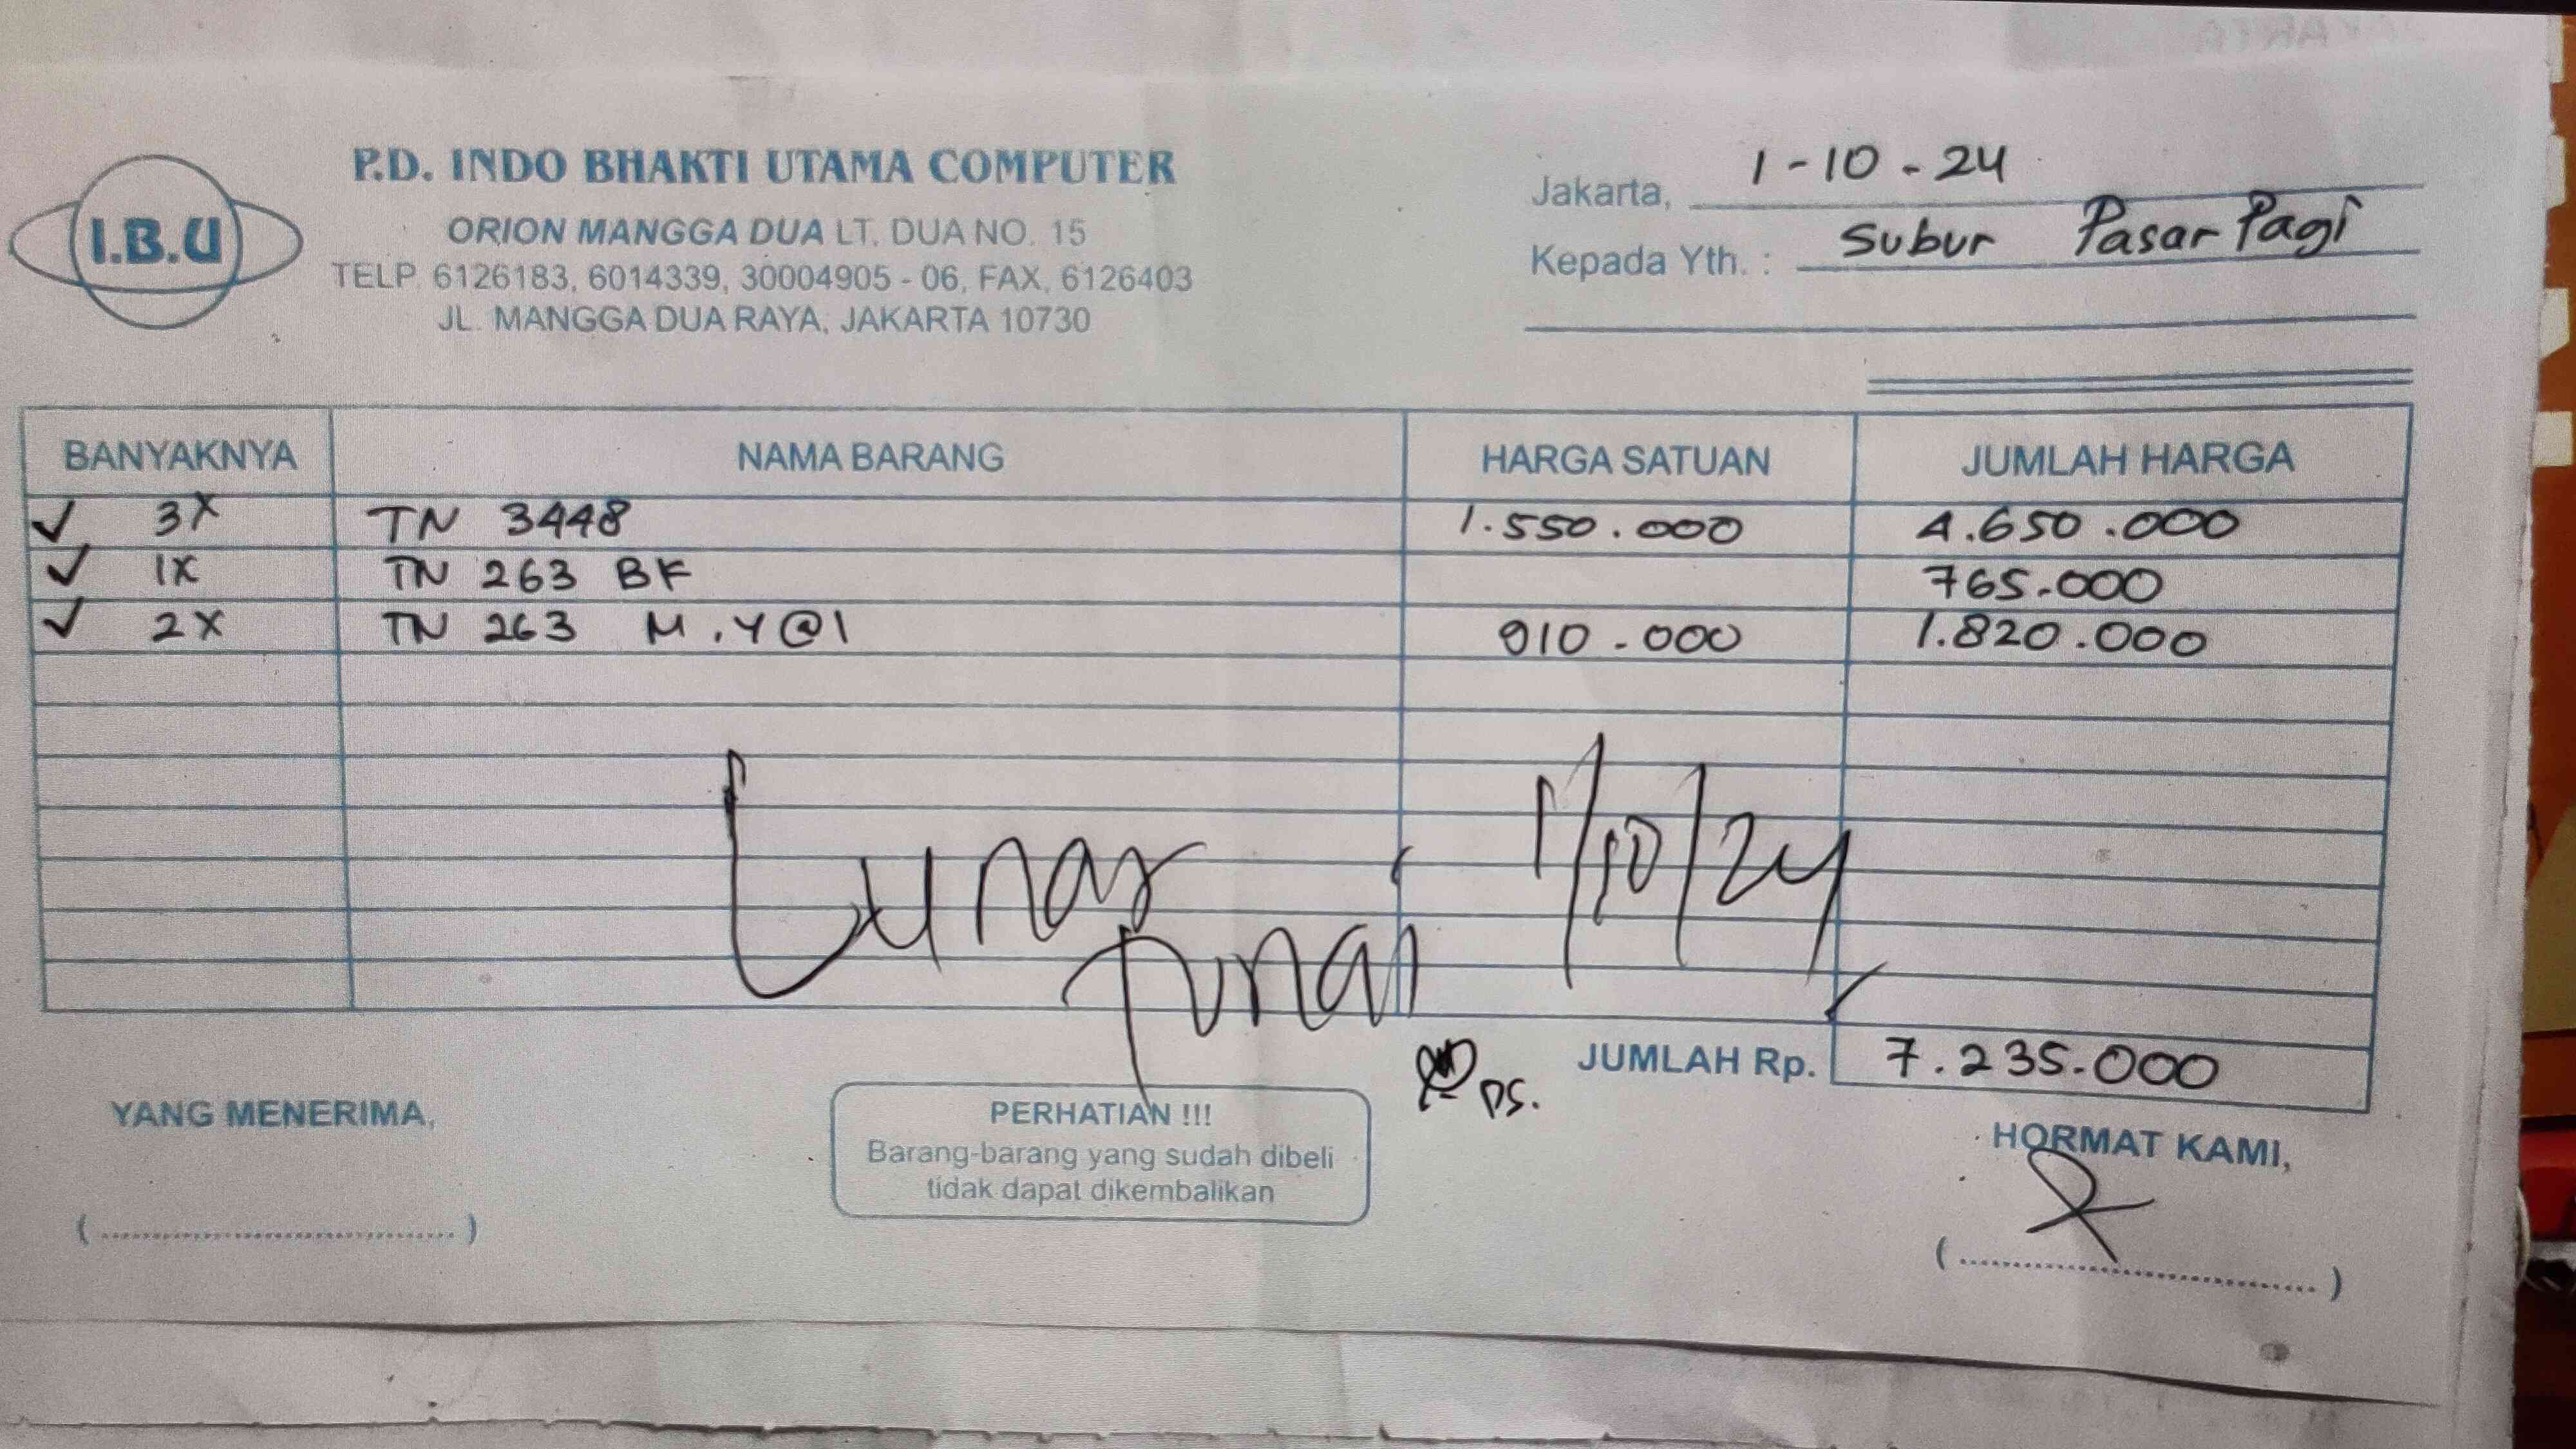 I.B.U
P.D. INDO BHAKTI UTAMA COMPUTER
ORION MANGGA DUA LT. DUA NO. 15
TELP. 6126183, 6014339, 30004905 - 06, FAX, 6126403
JL. MANGGA DUA RAYA, JAKARTA 10730
Jakarta, 1-10-24
Kepada Yth. : Subur Pasar Pagi
BANYAKNYA NAMA BARANG HARGA SATUAN JUMLAH HARGA
3X TN 3448 1.550.000 4.650.000
1X TN 263 BK 765.000
2X TN 263 M.Y@1 910.000 1.820.000
Lunas 1/10/24
Tunai
JUMLAH Rp. 7.235.000
YANG MENERIMA,
PERHATIAN !!!
Barang-barang yang sudah dibeli
tidak dapat dikembalikan
HORMAT KAMI,